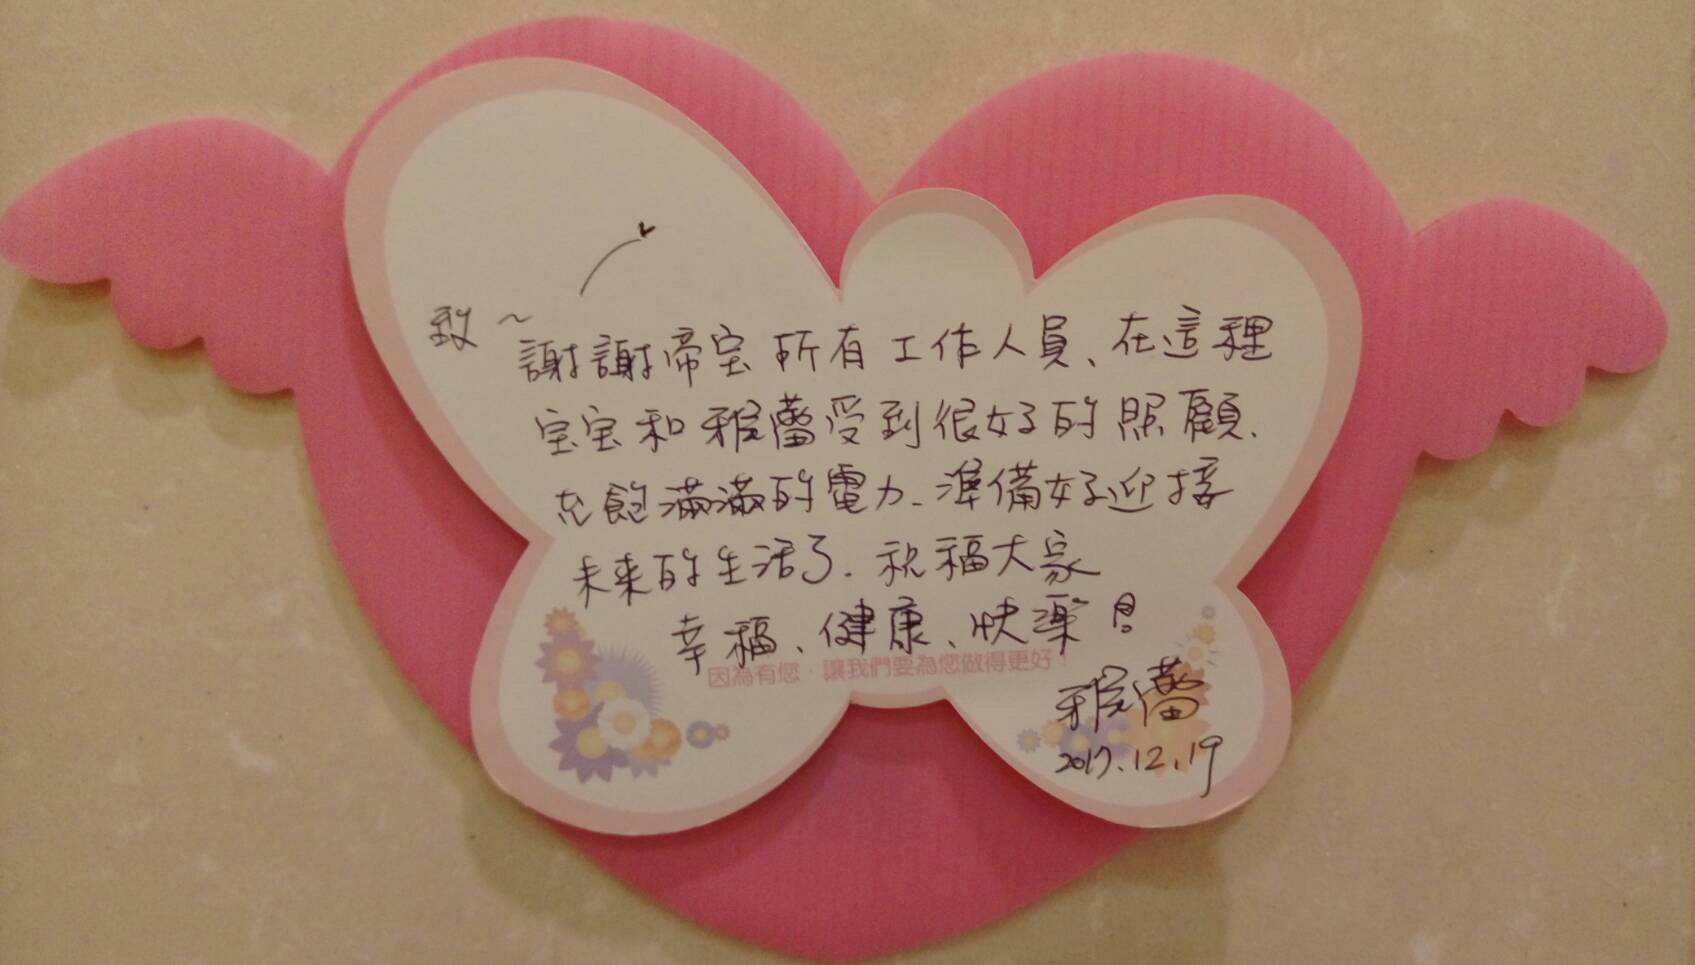 致~
謝謝帝宝所有工作人員、在這裡
宝宝和雅蕾受到很好的照顧.
充飽滿滿的電力.準備好迎接
未來的生活了.祝福大家
幸福、健康、快樂!
因為有您,讓我們要為您做得更好!
雅蕾
2017.12.19